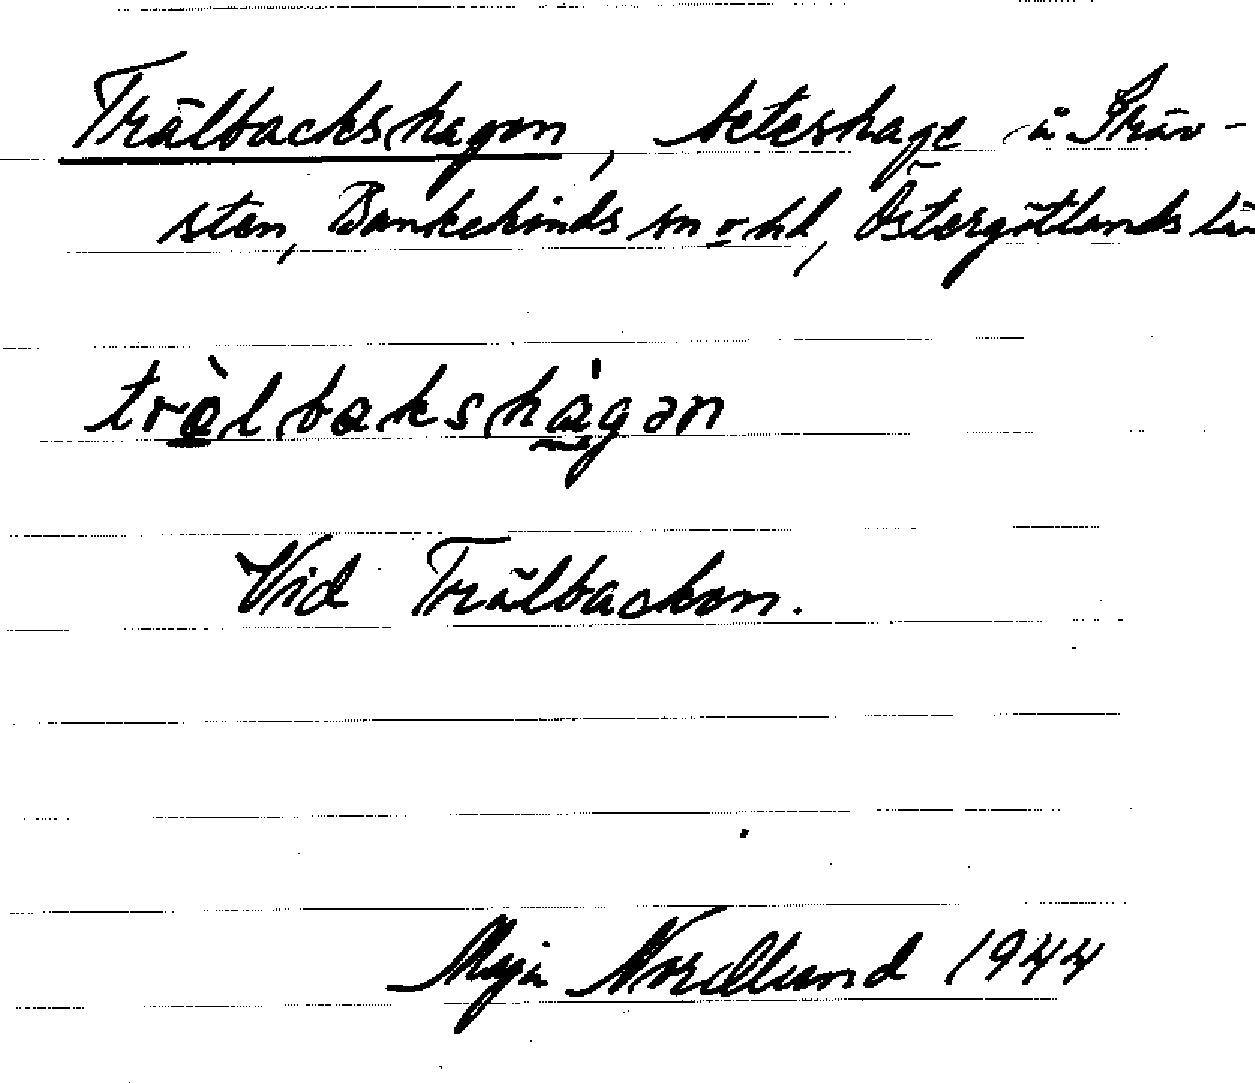 Trälbackshagen, beteshage å Skräv-
sten, Bankekinds sn o hd, Östergötlands lä
trålbakshágən
Vid Trälbacken.
Maja Nordlund 1944